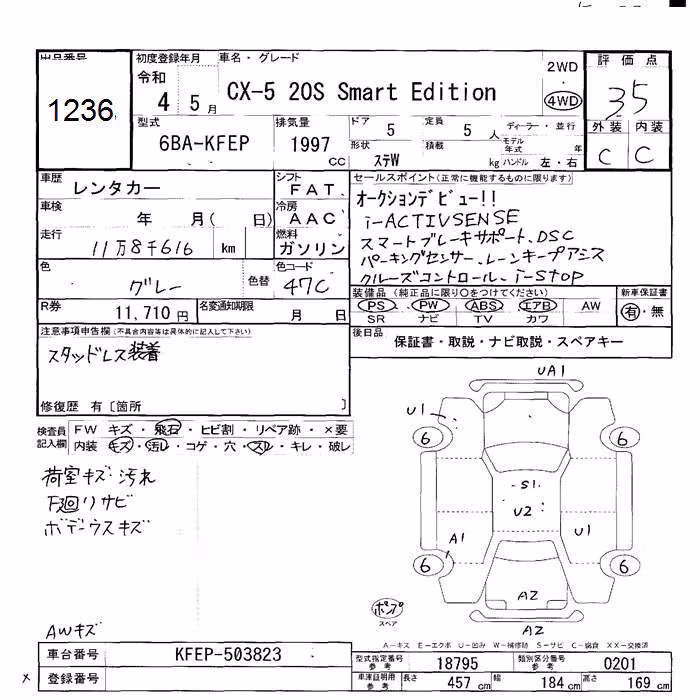 出品番号 初度登録年月 車名・グレード
1236 令和 4 5月 CX-5 20S Smart Edition 2WD 4WD
評価点
35
外装 内装
C C
型式 6BA-KFEP
排気量 1997 cc
ドア 5 定員 5人 ディーラー・並行
形状 ステW 積載 kg モデル年式 年 ハンドル 左・右
車歴 レンタカー
シフト FAT
車検 年 月( 日)
冷房 AAC
走行 11万8千616 km
燃料 ガソリン
色 グレー 色替
色コード 47C
R券 11,710円 名変通知期限 月 日
セールスポイント(正常に機能するものに限ります)
オークションデビュー!!
i-ACTIVSENSE
スマートブレーキサポート、DSC
パーキングセンサー、レーンキープアシス
クルーズコントロール、i-stop
装備品 (純正品に限り○をつけてください) 新車保証書
PS ・ PW ・ ABS ・ エアB ・ AW
SR ナビ TV カワ
有・無
後日品 保証書・取説・ナビ取説・スペアキー
注意事項申告欄(不具合内容等は具体的に記入して下さい)
スタッドレス装着
修復歴 有〔箇所 〕
検査員記入欄 FW キズ・飛石・ヒビ割・リペア跡・×要
内装 キズ・汚レ・コゲ・穴・スレ・キレ・破レ
荷室キズ・汚れ
下廻りサビ
ボデーウスキズ
AWキズ
UA1
U1
6 6
S1
U2
A1 U1
6 6
A2
ポンプ
スペア
A2
A-キズ E-エクボ U-凹み W-補修跡 S-サビ C-腐食 XX-交換済
車台番号 KFEP-503823
型式指定番号 参考 18795 類別区分番号 参考 0201
× 登録番号
車庫証明用 参考 長さ 457 cm 幅 184 cm 高さ 169 cm